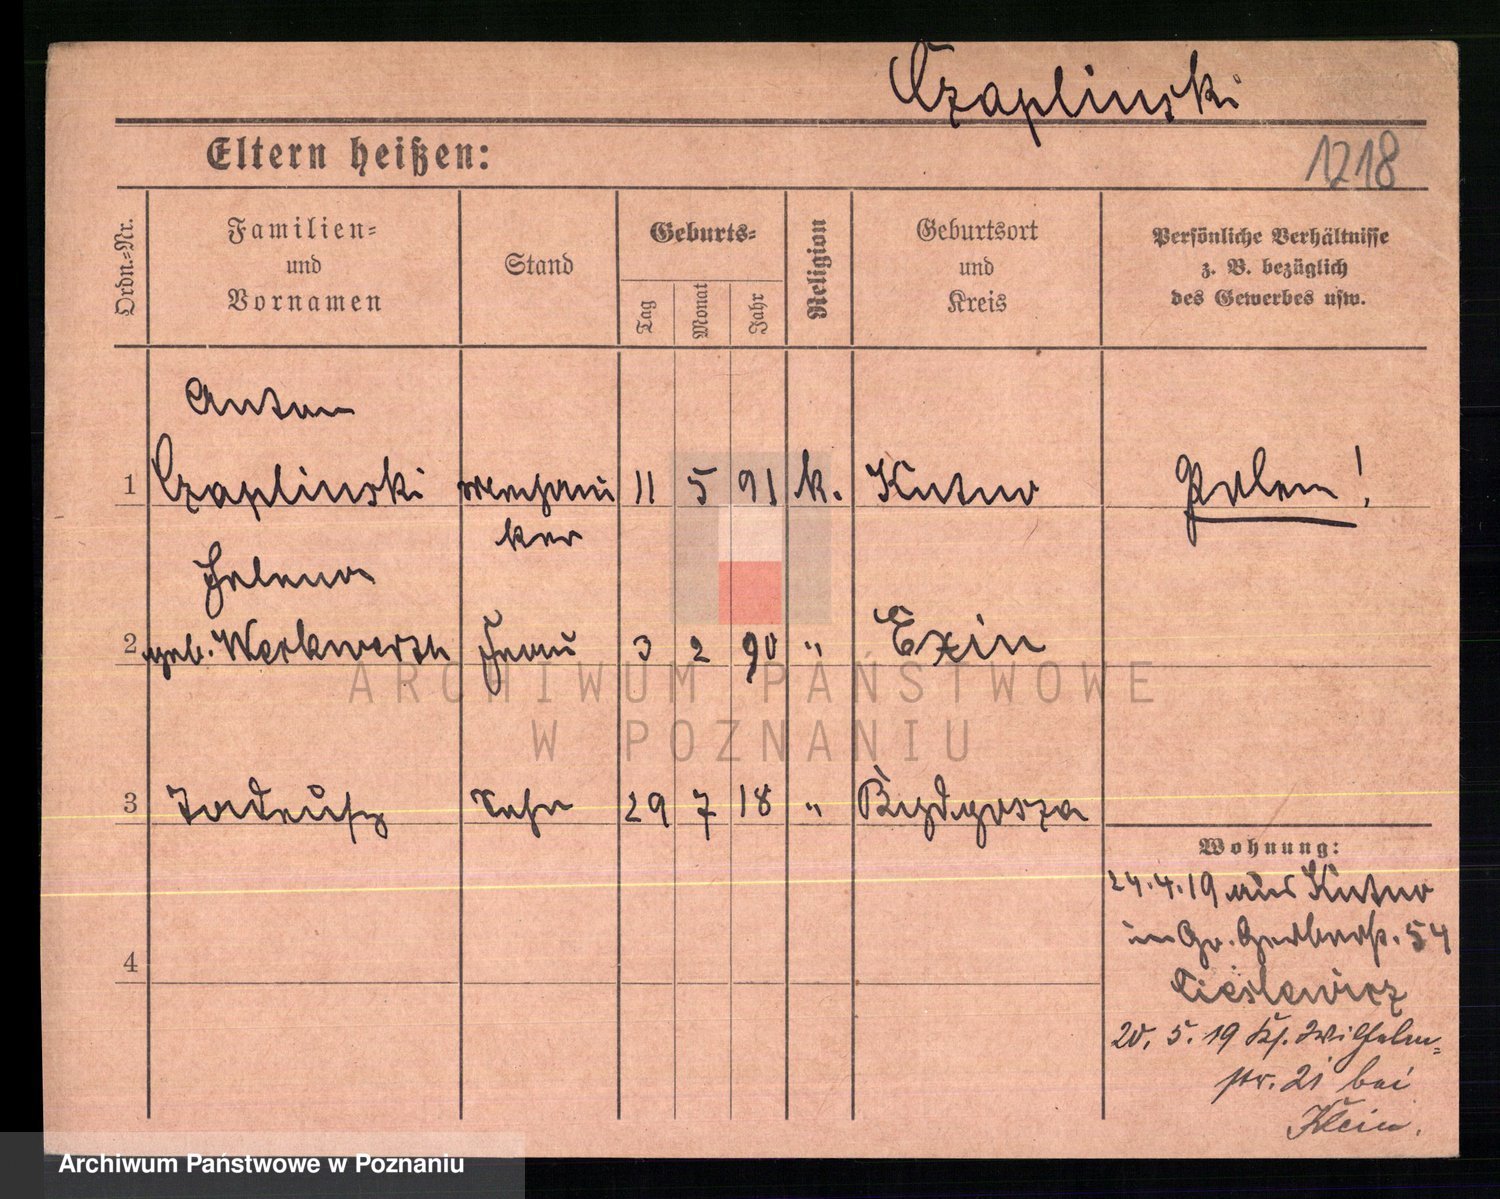 Czaplinski
Eltern heißen:
1218
Ordn.-Nr.
Familien-
und
Vornamen
Stand
Geburts-
Tag
Monat
Jahr
Religion
Geburtsort
und
Kreis
Persönliche Verhältnisse
z. B. bezüglich
des Gewerbes usw.
Anton
1 Czaplinski Mechani 11 5 91 k. Kutno Polen!
ker
Helena
2 geb. Frau 3 2 90 " Exin
ARCHIWUM PAŃSTWOWE
W POZNANIU
3 Tadeusz Sohn 29 7 18 " Bydgosza
Wohnung:
24.4.19 aus Kutno
in Gr. Gerberstr. 54
Cieslewicz
4
20. 5. 19 Kl. Wilhelm-
str. 21 bei
Klein.
Archiwum Państwowe w Poznaniu